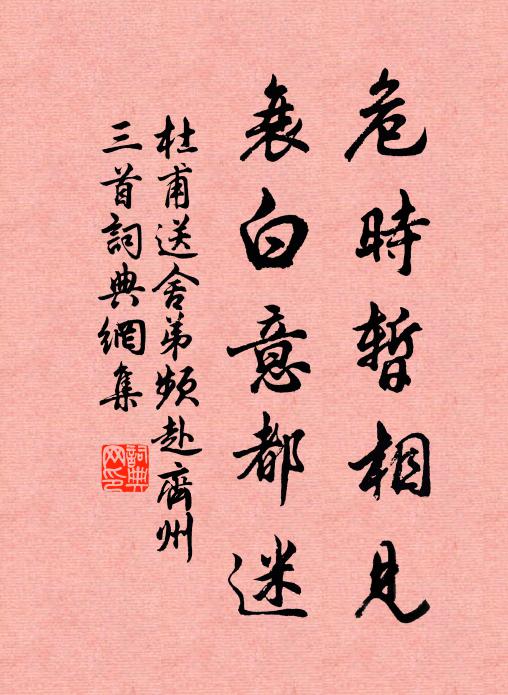 危時暫相見
衰白意都迷
杜甫送舍弟频赴齊州
三首詞典網集
詞典
网印